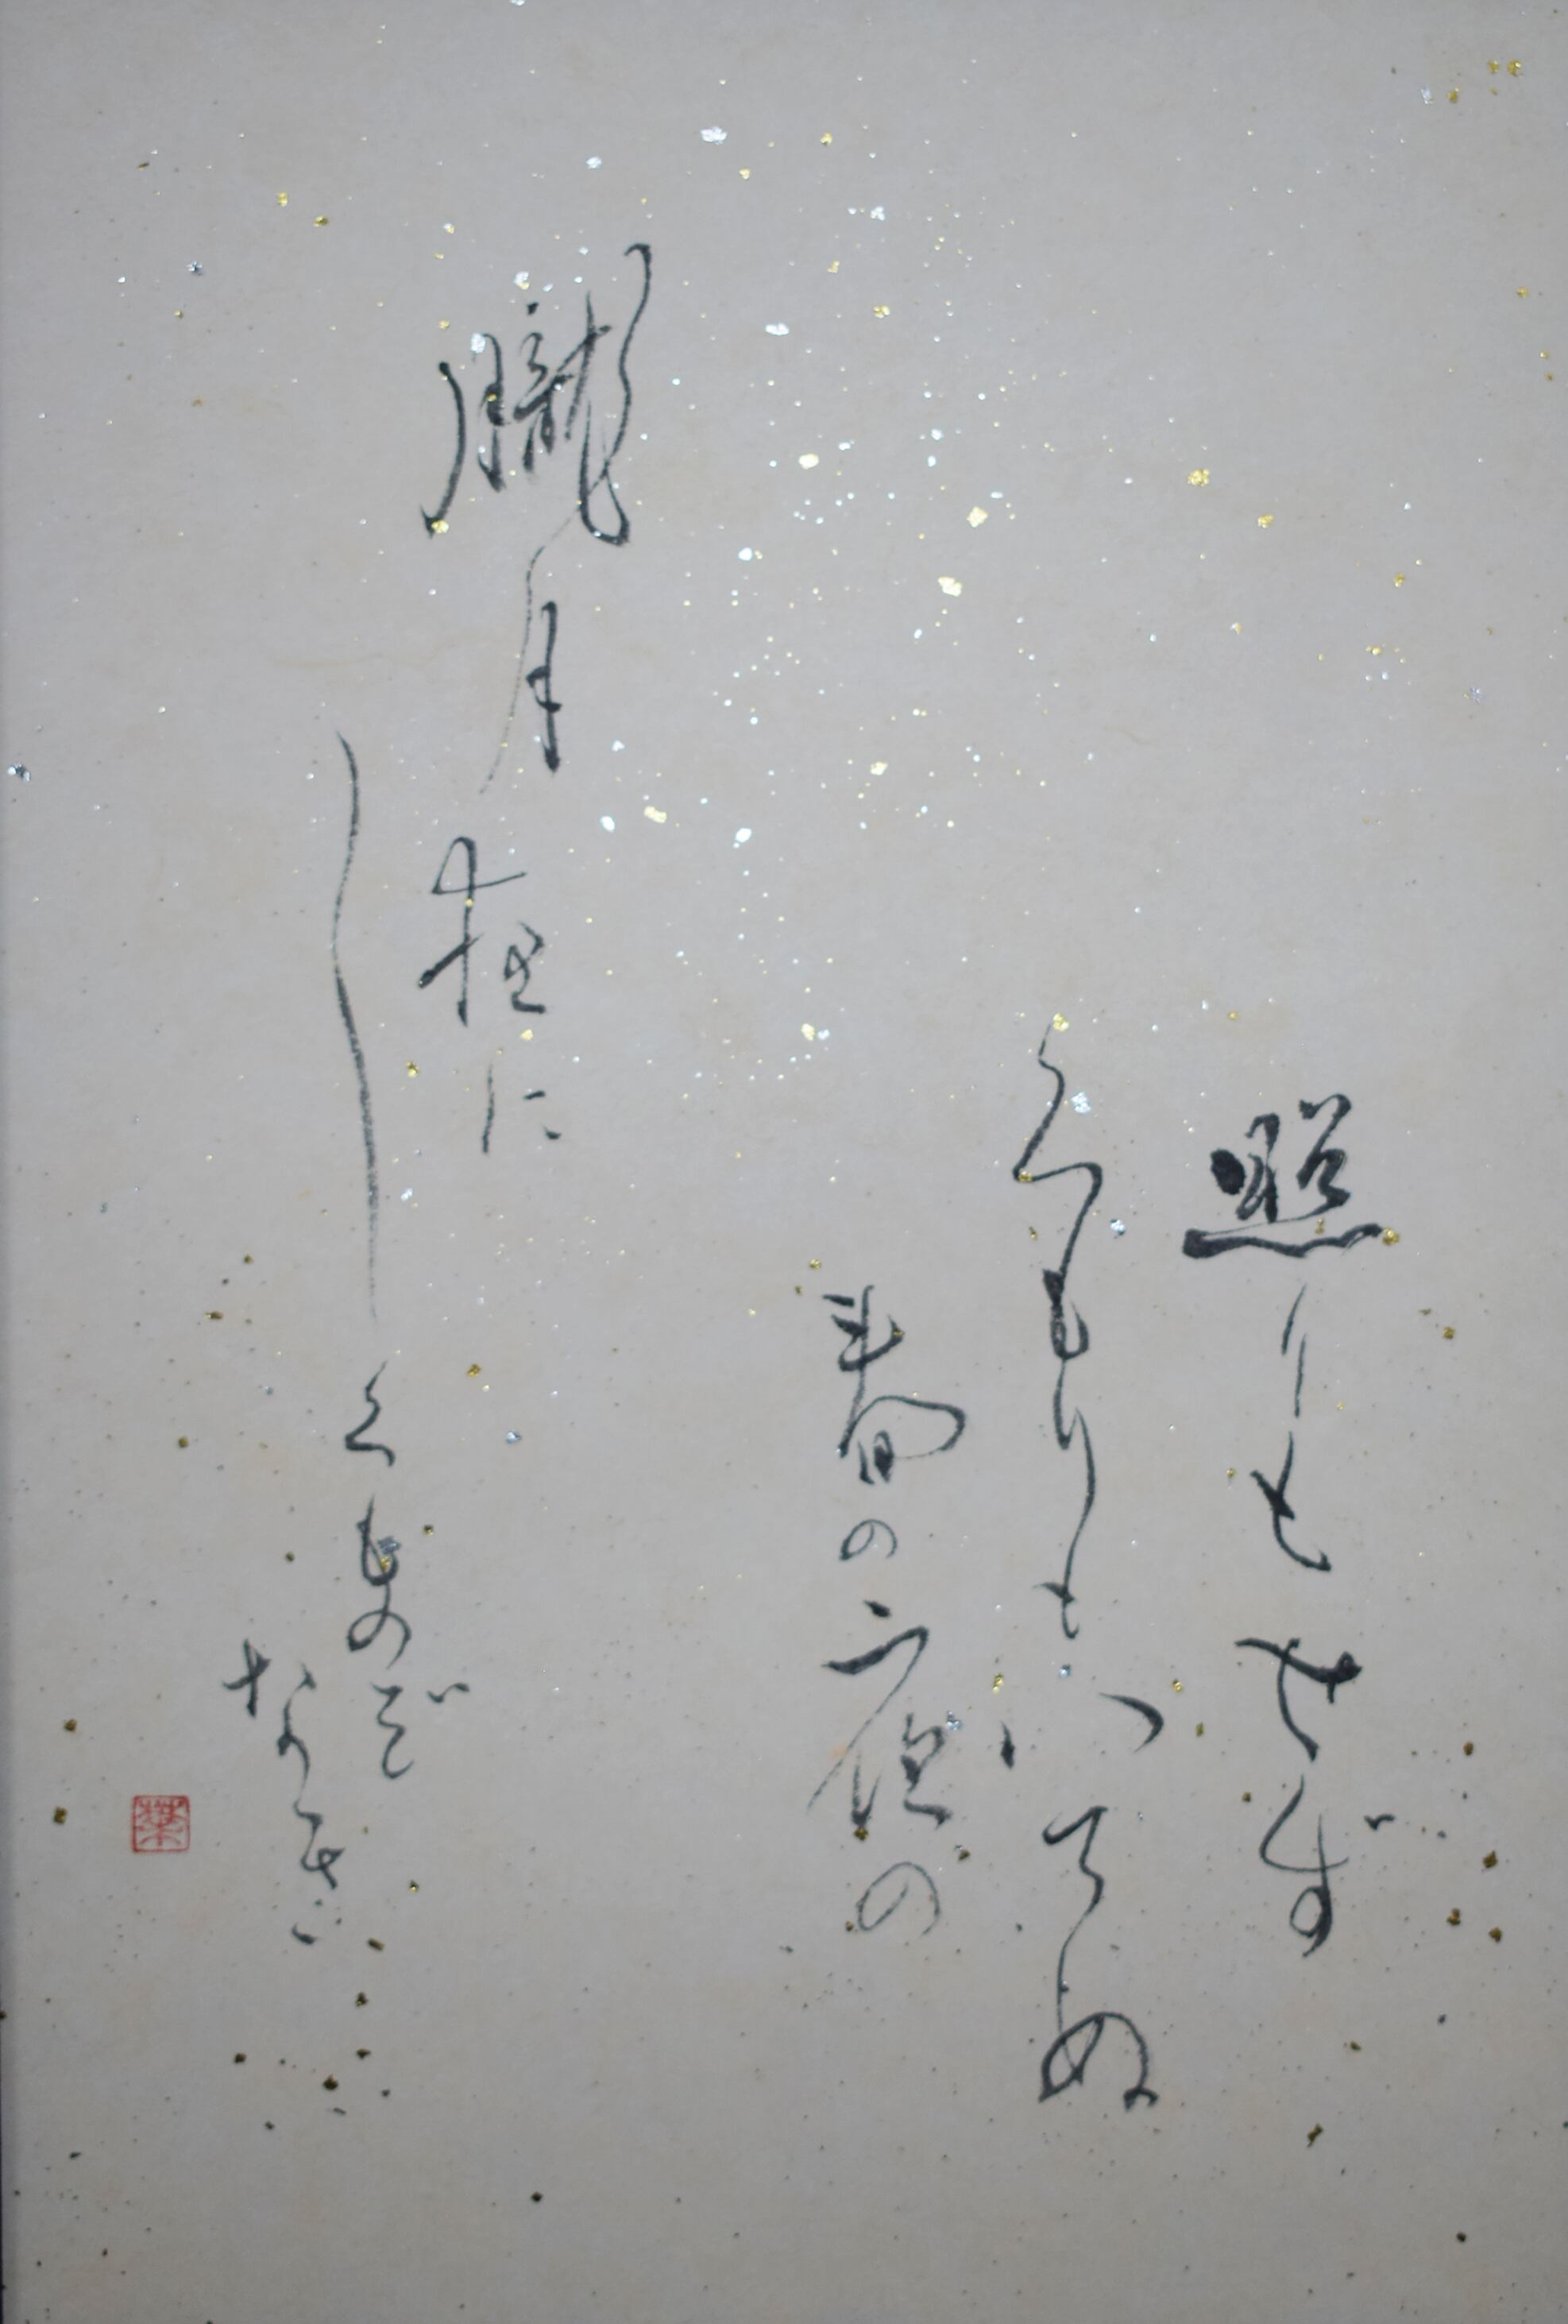 照りもせず
くもりもはてぬ
春の夜の
朧月夜に
しくものぞ
なき